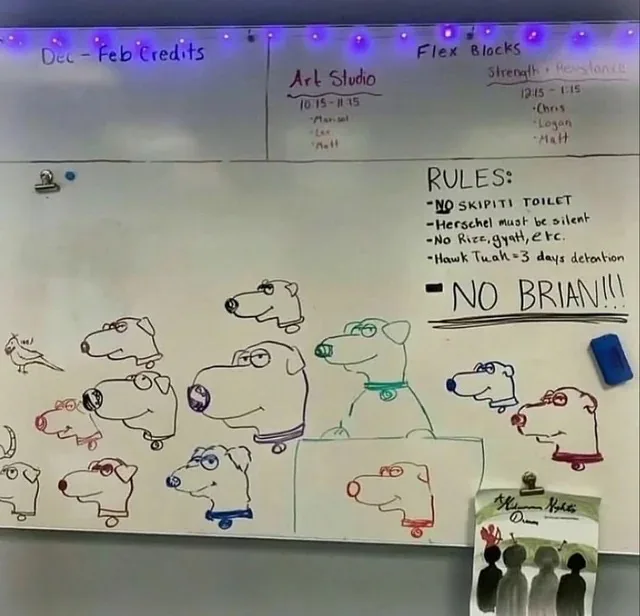 Dec - Feb Credits
Flex Blocks
Art Studio
10:15-11:15
-Marisol
-Lee
-Matt
Strength + Resistance
12:15 - 1:15
-Chris
-Logan
-Matt
RULES:
-NO SKIPITI TOILET
-Herschel must be silent
-No Rizz, gyatt, etc.
-Hawk Tuah = 3 days detention
- NO BRIAN!!!